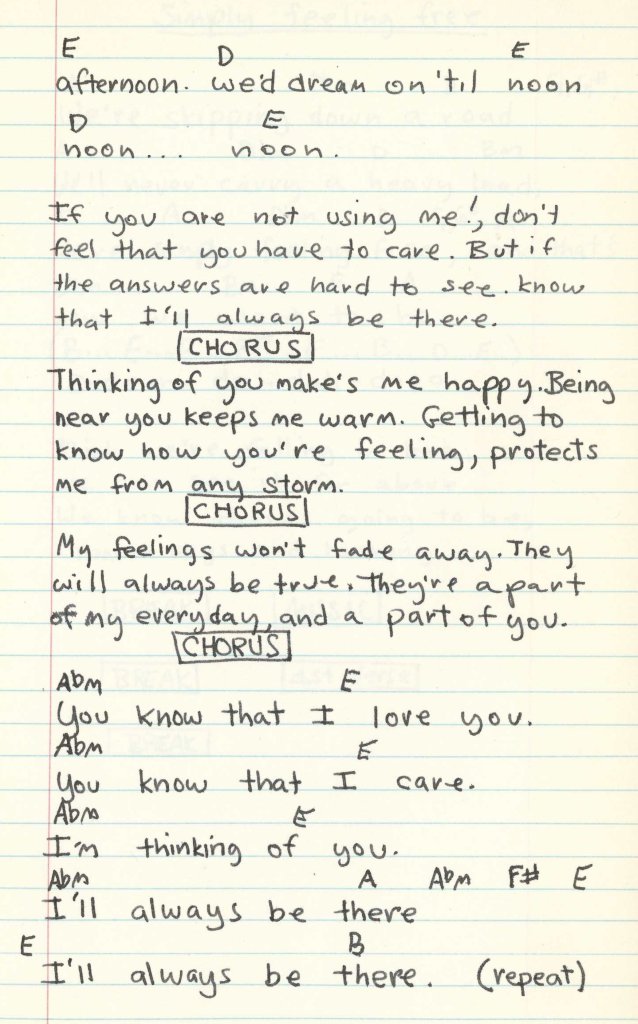 E D E
afternoon. we'd dream on 'til noon
D E
noon... noon.
If you are not using me!, don't
feel that you have to care. But if
the answers are hard to see. know
that I'll always be there.
CHORUS
Thinking of you make's me happy. Being
near you keeps me warm. Getting to
know how you're feeling, protects
me from any storm.
CHORUS
My feelings won't fade away. They
will always be true. They're a part
of my everyday, and a part of you.
CHORUS
Abm E
You know that I love you.
Abm E
You know that I care.
Abm E
I'm thinking of you.
Abm A Abm F# E
I'll always be there
E B
I'll always be there. (repeat)